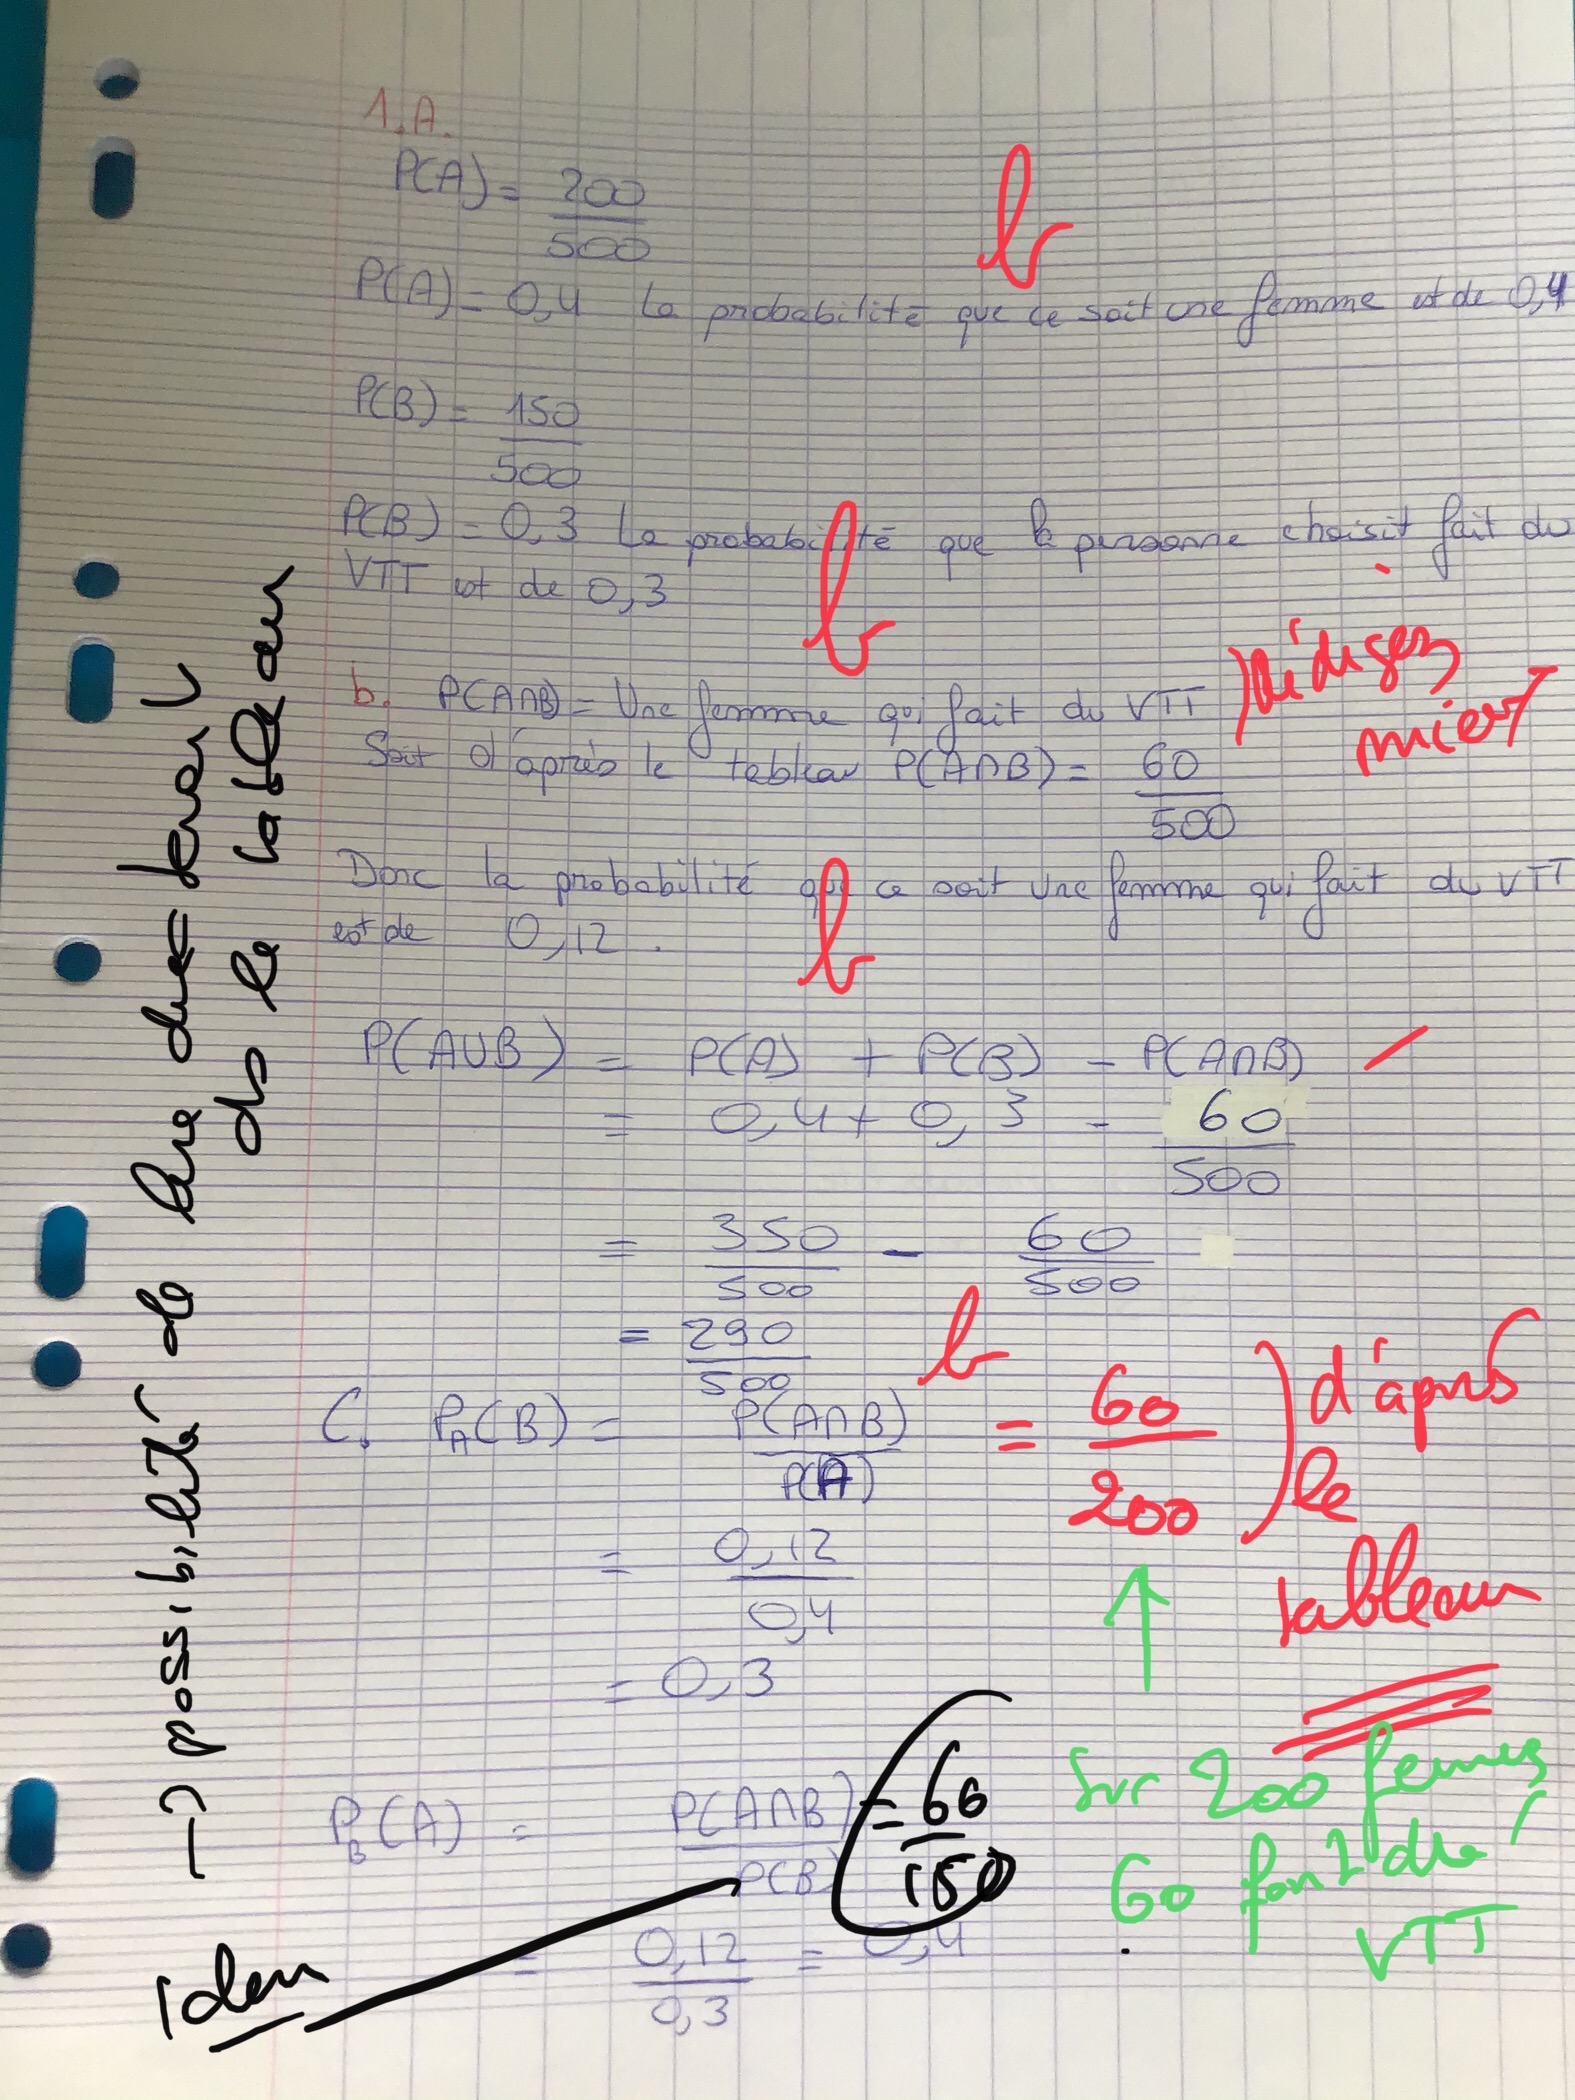 1.A.
P(A) = 200/500
b
P(A) = 0,4 La probabilité que ce soit une femme est de 0,4
P(B) = 150/500
P(B) = 0,3 La probabilité que la personne choisit fait du
VTT est de 0,3
b
b. P(A∩B) = Une femme qui fait du VTT
Rédigez
mieux
Soit d'après le tableau P(A∩B) = 60/500
Donc la probabilité que ce soit une femme qui fait du VTT
est de 0,12.
b
P(A∪B) = P(A) + P(B) - P(A∩B)
= 0,4 + 0,3 - 60/500
= 350/500 - 60/500
= 290/500
b
C. P_A(B) = P(A∩B)/P(A)
= 60/200
d'après
le
tableau
= 0,12/0,4
= 0,3
Sur 200 femmes
60 font du
VTT
P_B(A) = P(A∩B)/P(B)
= 60/150
= 0,12/0,3 = 0,4
idem
→ possibilité de lire directement
ds le tableau